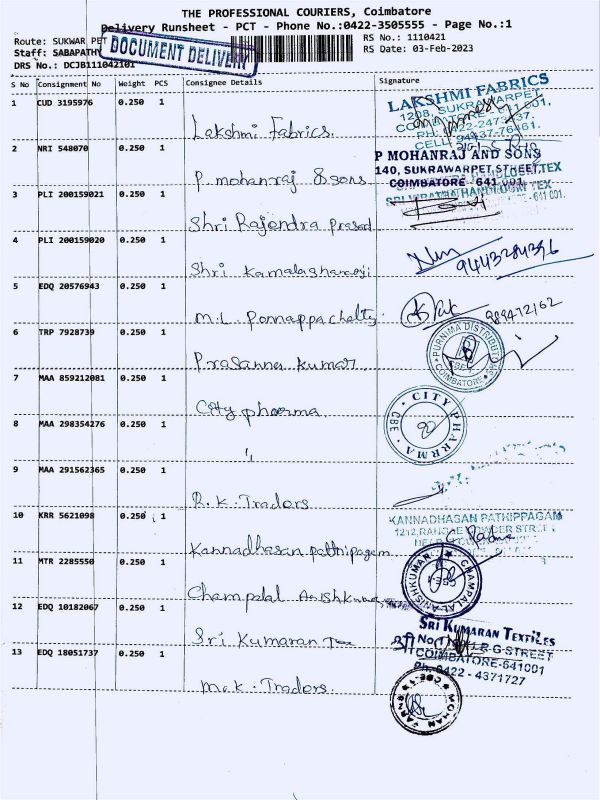 THE PROFESSIONAL COURIERS, Coimbatore
Delivery Runsheet - PCT - Phone No.:0422-3505555 - Page No.:1
Route: SUKWAR PET
RS No.: 1110421
Staff: SABAPATHY
RS Date: 03-Feb-2023
DOCUMENT DELIVERY
DRS No.: DCJB111042101
S No Consignment No Weight PCS Consignee Details Signature
1 CUD 3195976 0.250 1
Lakshmi Fabrics.
LAKSHMI FABRICS
1208, SUKRAWARPET
2 NRI 548070 0.250 1
P. mohanraj & sons
P MOHANRAJ AND SONS
140, SUKRAWARPET, STREET,
COIMBATORE - 641 001.
3 PLI 200159021 0.250 1
Shri Rajendra prasad
4 PLI 200159020 0.250 1
9443284396
5 EDQ 20576943 0.250 1
M.L. Ponnappa chetty
6 TRP 7928739 0.250 1
Prasanna kumar
PURNIMA DISTRIBUTORS
COIMBATORE
7 MAA 859212081 0.250 1
City pharma
CITY PHARMA
CBE
8 MAA 298354276 0.250 1
"
9 MAA 291562365 0.250 1
R.K. Traders
10 KRR 5621098 0.250 1
Kannadhasan pathipagam
KANNADHASAN PATHIPPAGAM
11 MTR 2285550 0.250 1
Champalal Anishkumar
CHAMPALAL ANISHKUMAR
12 EDQ 10182067 0.250 1
Sri Kumaran Tex
SRI KUMARAN TEXTILES
COIMBATORE-641001
Ph: 0422 - 4371727
13 EDQ 18051737 0.250 1
M.K. Traders.
MOHAN
CBE-1